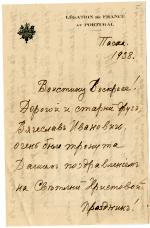 LÉGATION DE FRANCE
AU PORTUGAL
Пасха.
1938.
Воистину Воскресе!
Дорогой и старый другъ,
Вячеславъ Ивановичъ,
очень была тронута
Вашимъ поздравленіемъ
на Свѣтлый Христовой
Праздникъ!